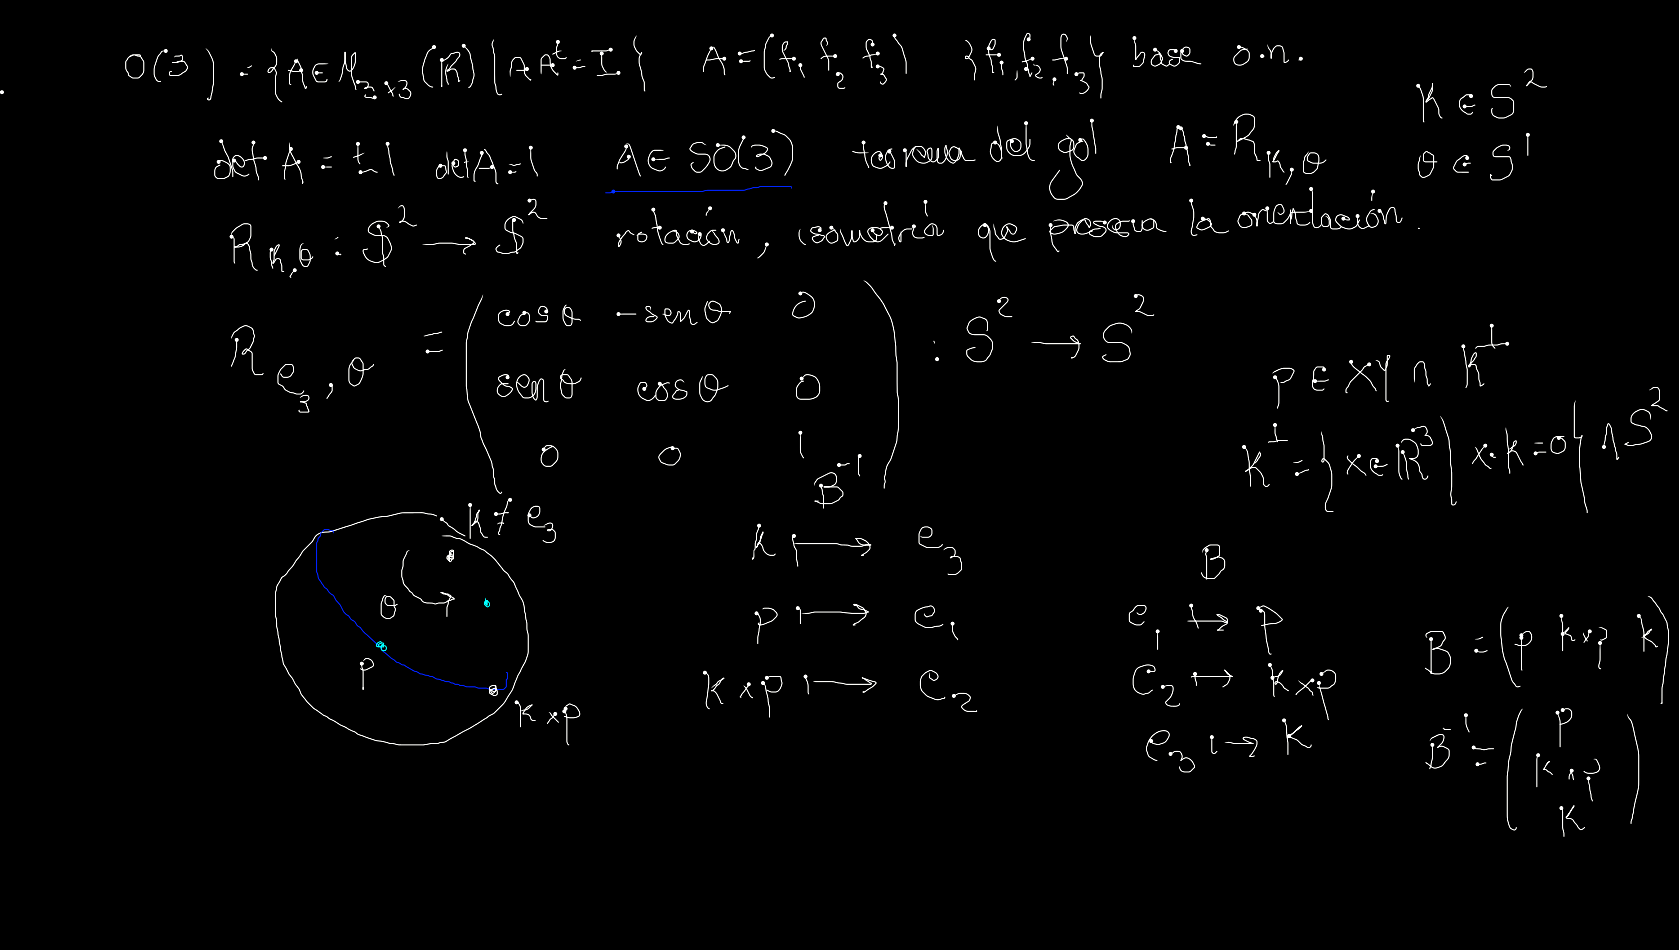 O(3) = {A ∈ M₃ₓ₃(ℝ) | A Aᵗ = I} A = (f₁ f₂ f₃) {f₁, f₂, f₃} base o.n.
K ∈ S²
det A = ±1 det A = 1 A ∈ SO(3) teorema del gol A = R_{K,θ} θ ∈ S¹
R_{K,θ} : $² → $² rotación, isometría que preserva la orientación.
R_{e₃,θ} = ( cos θ -sen θ 0 : S² → S²
sen θ cos θ 0
0 0 1 )
p ∈ XY ∩ K^⊥
K^⊥ = {x ∈ ℝ³ | x · k = 0} ∩ S²
K ≠ e₃
θ
p
K × p
B⁻¹
k ↦ e₃
p ↦ e₁
K × p ↦ e₂
B
e₁ ↦ p
e₂ ↦ k × p
e₃ ↦ K
B = (p k × p k)
B⁻¹ = ( p
k × p
K )